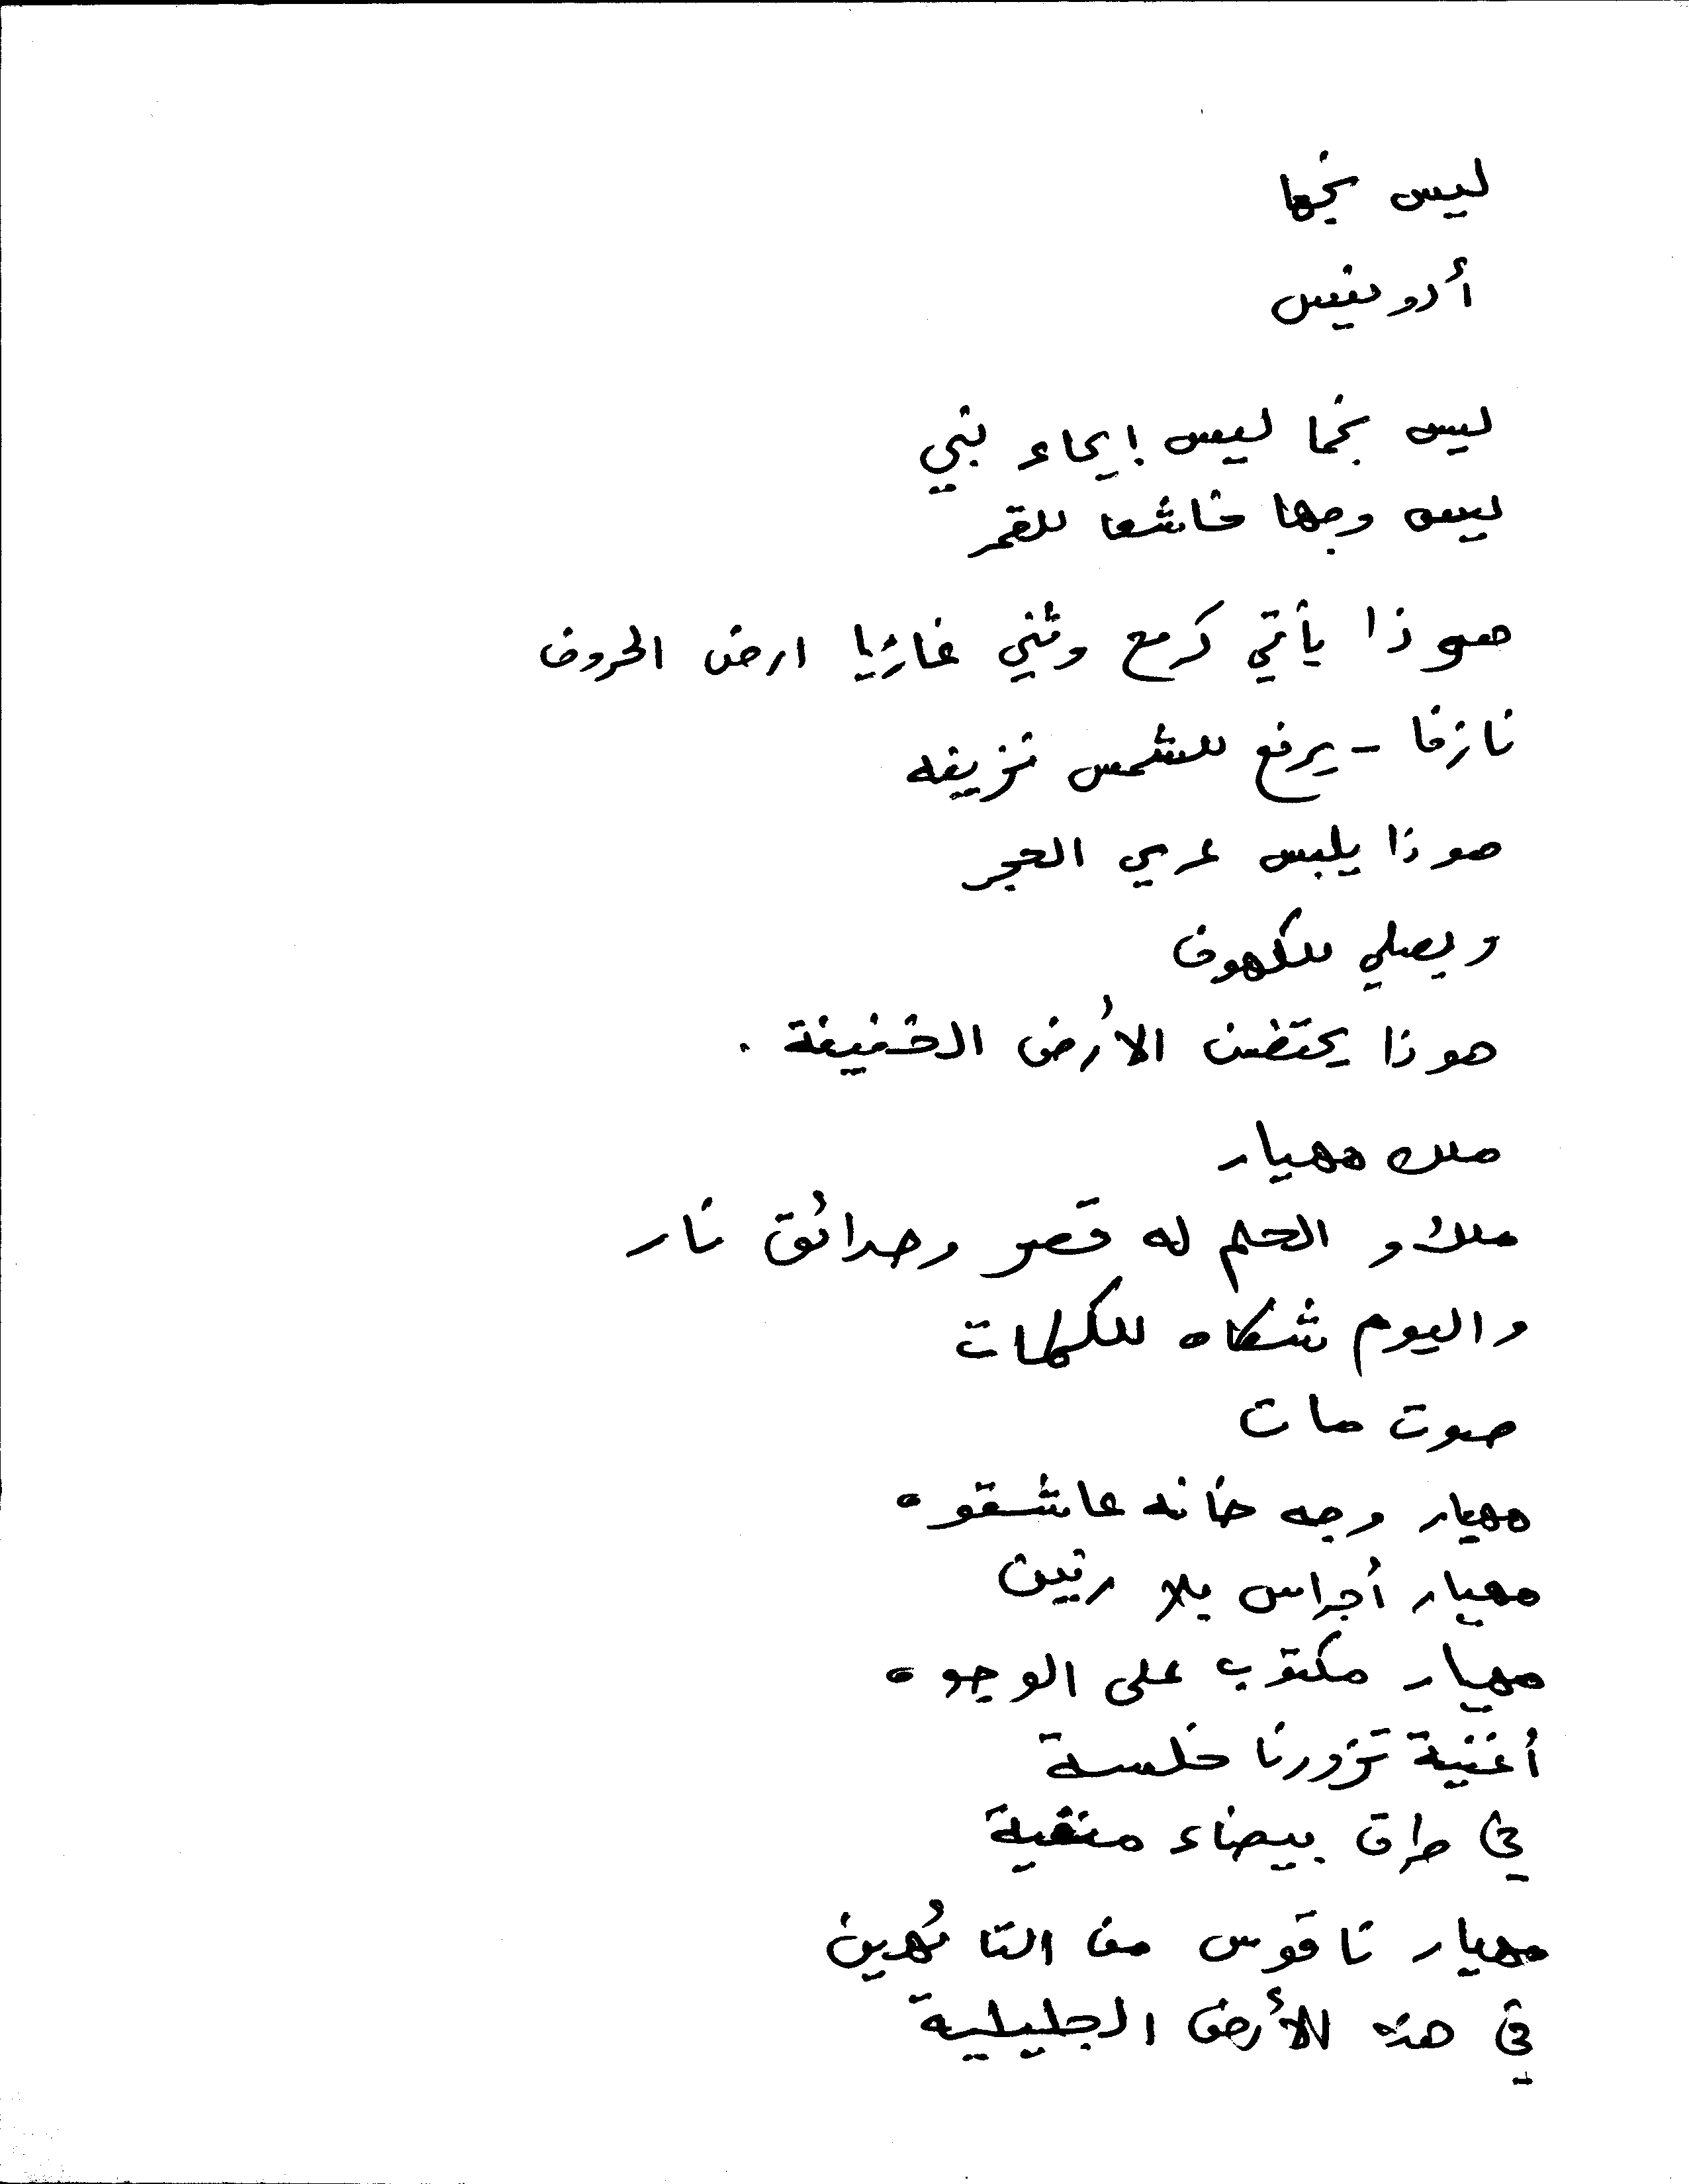 ليس نجما
أدونيس
ليس نجما ليس إيحاء نبي
ليس وجها خاشعا للقمر
هوذا يأتي كرمح وثني غازيا ارض الحروف
نازفا - يرفع للشمس نزيفه
هوذا يلبس عري الحجر
ويصلي للكهوف
هوذا يحتضن الأرض الخفيفة .
ملك مهيار
ملك و الحلم له قصر وحدائق نار
واليوم شكاه للكلمات
صوت مات
مهيار وجه خانه عاشقوه
مهيار أجراس بلا رنين
مهيار مكتوب على الوجوه
أغنية تزورنا خلسة
في طرق بيضاء منفية
مهيار ناقوس من التائهين
في هذه الأرض الجليلية